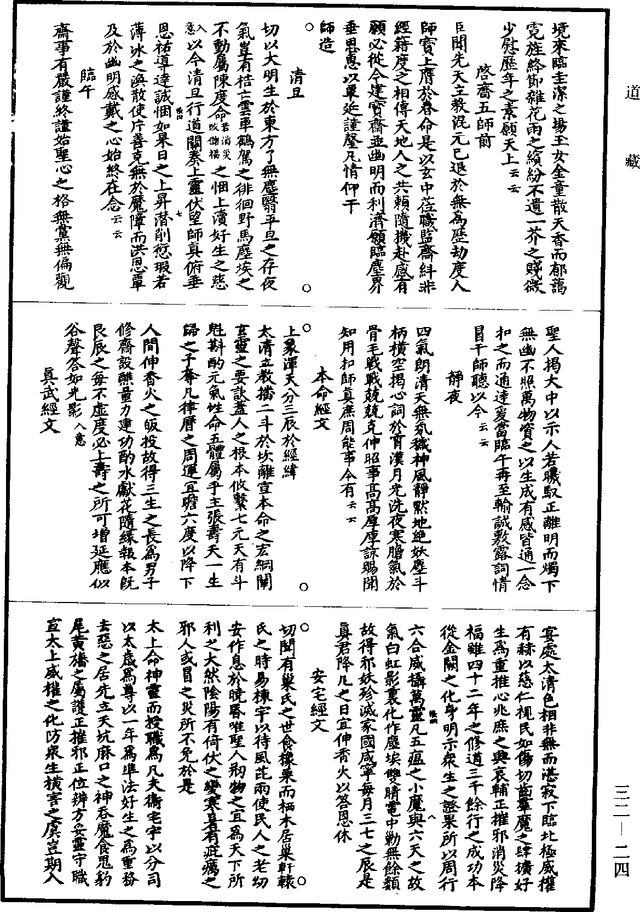 道藏
境來臨圭潔之場玉女金童散天香而郁藹
霓旌絳節雜花雨之繽紛不遺一芥之賤微
少慰歷年之素願天上云云
啓齋五師前
臣聞先天立教混元已退於無爲歷劫度人
師寶上膺於眷命是以玄中在職監齋糾非
經籍度之相傳天地人之共賴隨機赴感有
願必從今建寳齋並幽明而利濟願臨塵界
垂恩惠以單延謹罄凡情仰干
師造
清旦
切以大明生於東方了無塵翳平旦之存夜
氣豈有梏亡雲車鶴駕之徘徊野馬塵埃之
不動屬陳度人之悃上瀆好生之慈
以今清旦行道關奏上靈伏望師真俯垂
恩祐導達誠悃如杲日之上昇潛削愆瑕若
薄冰之渙散使片善克無於魔障而洪恩覃
及於幽明感戴之心始終在念云云
臨午
齋事有嚴謹終謹始聖心之格無黨無偏觀
聖人揭大中以示人若曦馭正離明而燭下
無幽不照萬物資之以生成有感皆通一念
扣之而通達爰當臨午再至輸誠敷露詞情
冒干師聽以今云云
靜夜
四氣朗清天無氛穢神風靜默地絶妖塵斗
柄橫空揭心詞於霄漢月光洗夜寒膽氣於
骨毛戰戰兢兢克伸昭事高高庳庳諒賜聞
知用扣師真庶周能事今有云云
本命經文
上象渾天八分三辰於經緯
太清立教播二斗於坎離宣本命之宏綱闡
玄靈之要訣蓋人之根本攸繫七元天有斗
魁斟酌元氣性命五體屬乎主張壽天一生
歸之予奪凡律曆之周運宜瞻六度以降下
人間伸香火之皈投故得三生之長爲男子
修齋設醮量力建功酌水獻花隨緣報本旣
良辰之每不虛度必上壽之所可增延應似
谷聲荅如光影入意
真武經文
宴處太清色相非無而湛寂下臨北極威權
有赫以慈仁視民如傷切齒羣魔之肆擴好
生爲重推心兆庶之興哀輔正摧邪消災降
福雖四十二年之修道三千餘行之成功本
從金闕之化身明示衆生之證果所以周行
六合威攝萬靈凡五瘟之小魔與六天之故
氣白虹影裏化作塵埃雙睛電中勦無餘類
故得邪妖殄滅家國咸寧每月三七之辰是
真君降凡之日宜伸香火以答恩休
安宅經文
切聞有巢氏之世食橡栗而栖木居巢軒轅
氏之時易棟宇以待風莊雨使民人之老幼
安作息於曉昏唯聖人剏物之宜爲天下所
利之大然陰陽有倚伏之變寒暑有疵癘之
邪人或冒之災所不免於是
太上命神靈而授職爲凡夫衛宅宇以分司
以太歲爲尊以一年爲準法好生之爲重務
去惡之居先立天坑麻口之神吞魔食鬼豹
尾黃旛之屬護正摧邪正位辨方妥靈守職
宣太上威權之化防衆生橫害之虞豈期人
三二—二四